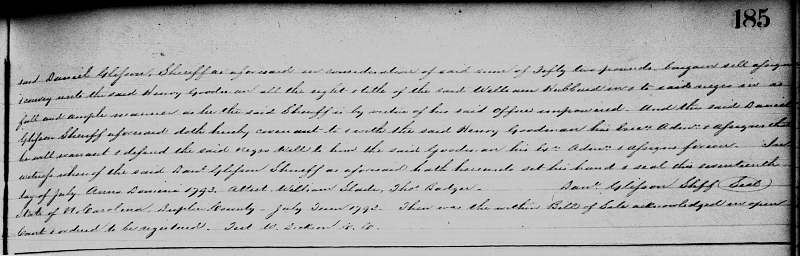 185
said Daniel Glisson, Sheriff as aforesaid in consideration of said sum of Fifty two pounds bargain sell assign
& convey unto the said Henry Goodman all the right & title of the said William Hubbard in & to said negro in as
full and ample manner as he the said Sheriff is by virtue of his said Office impowered. And the said Daniel
Glisson Sheriff aforesaid doth hereby covenant to & with the said Henry Goodman his Exrs Admrs & Assigns that
he will warrant & defend the said Negro Will to him the said Goodman his Exrs Admrs & Assigns forever. In
witness whereof the said Danl Glisson Sheriff as aforesaid hath hereunto set his hand & seal this seventeenth
day of July Anno Domini 1793. Attest William Slade, Thos Badger. Danl Glisson Shff (Seal)
State of N Carolina, Duplin County - July Term 1793. Then was the within Bill of Sale acknowledged in open
Court & ordered to be registered. Test W. Dickson